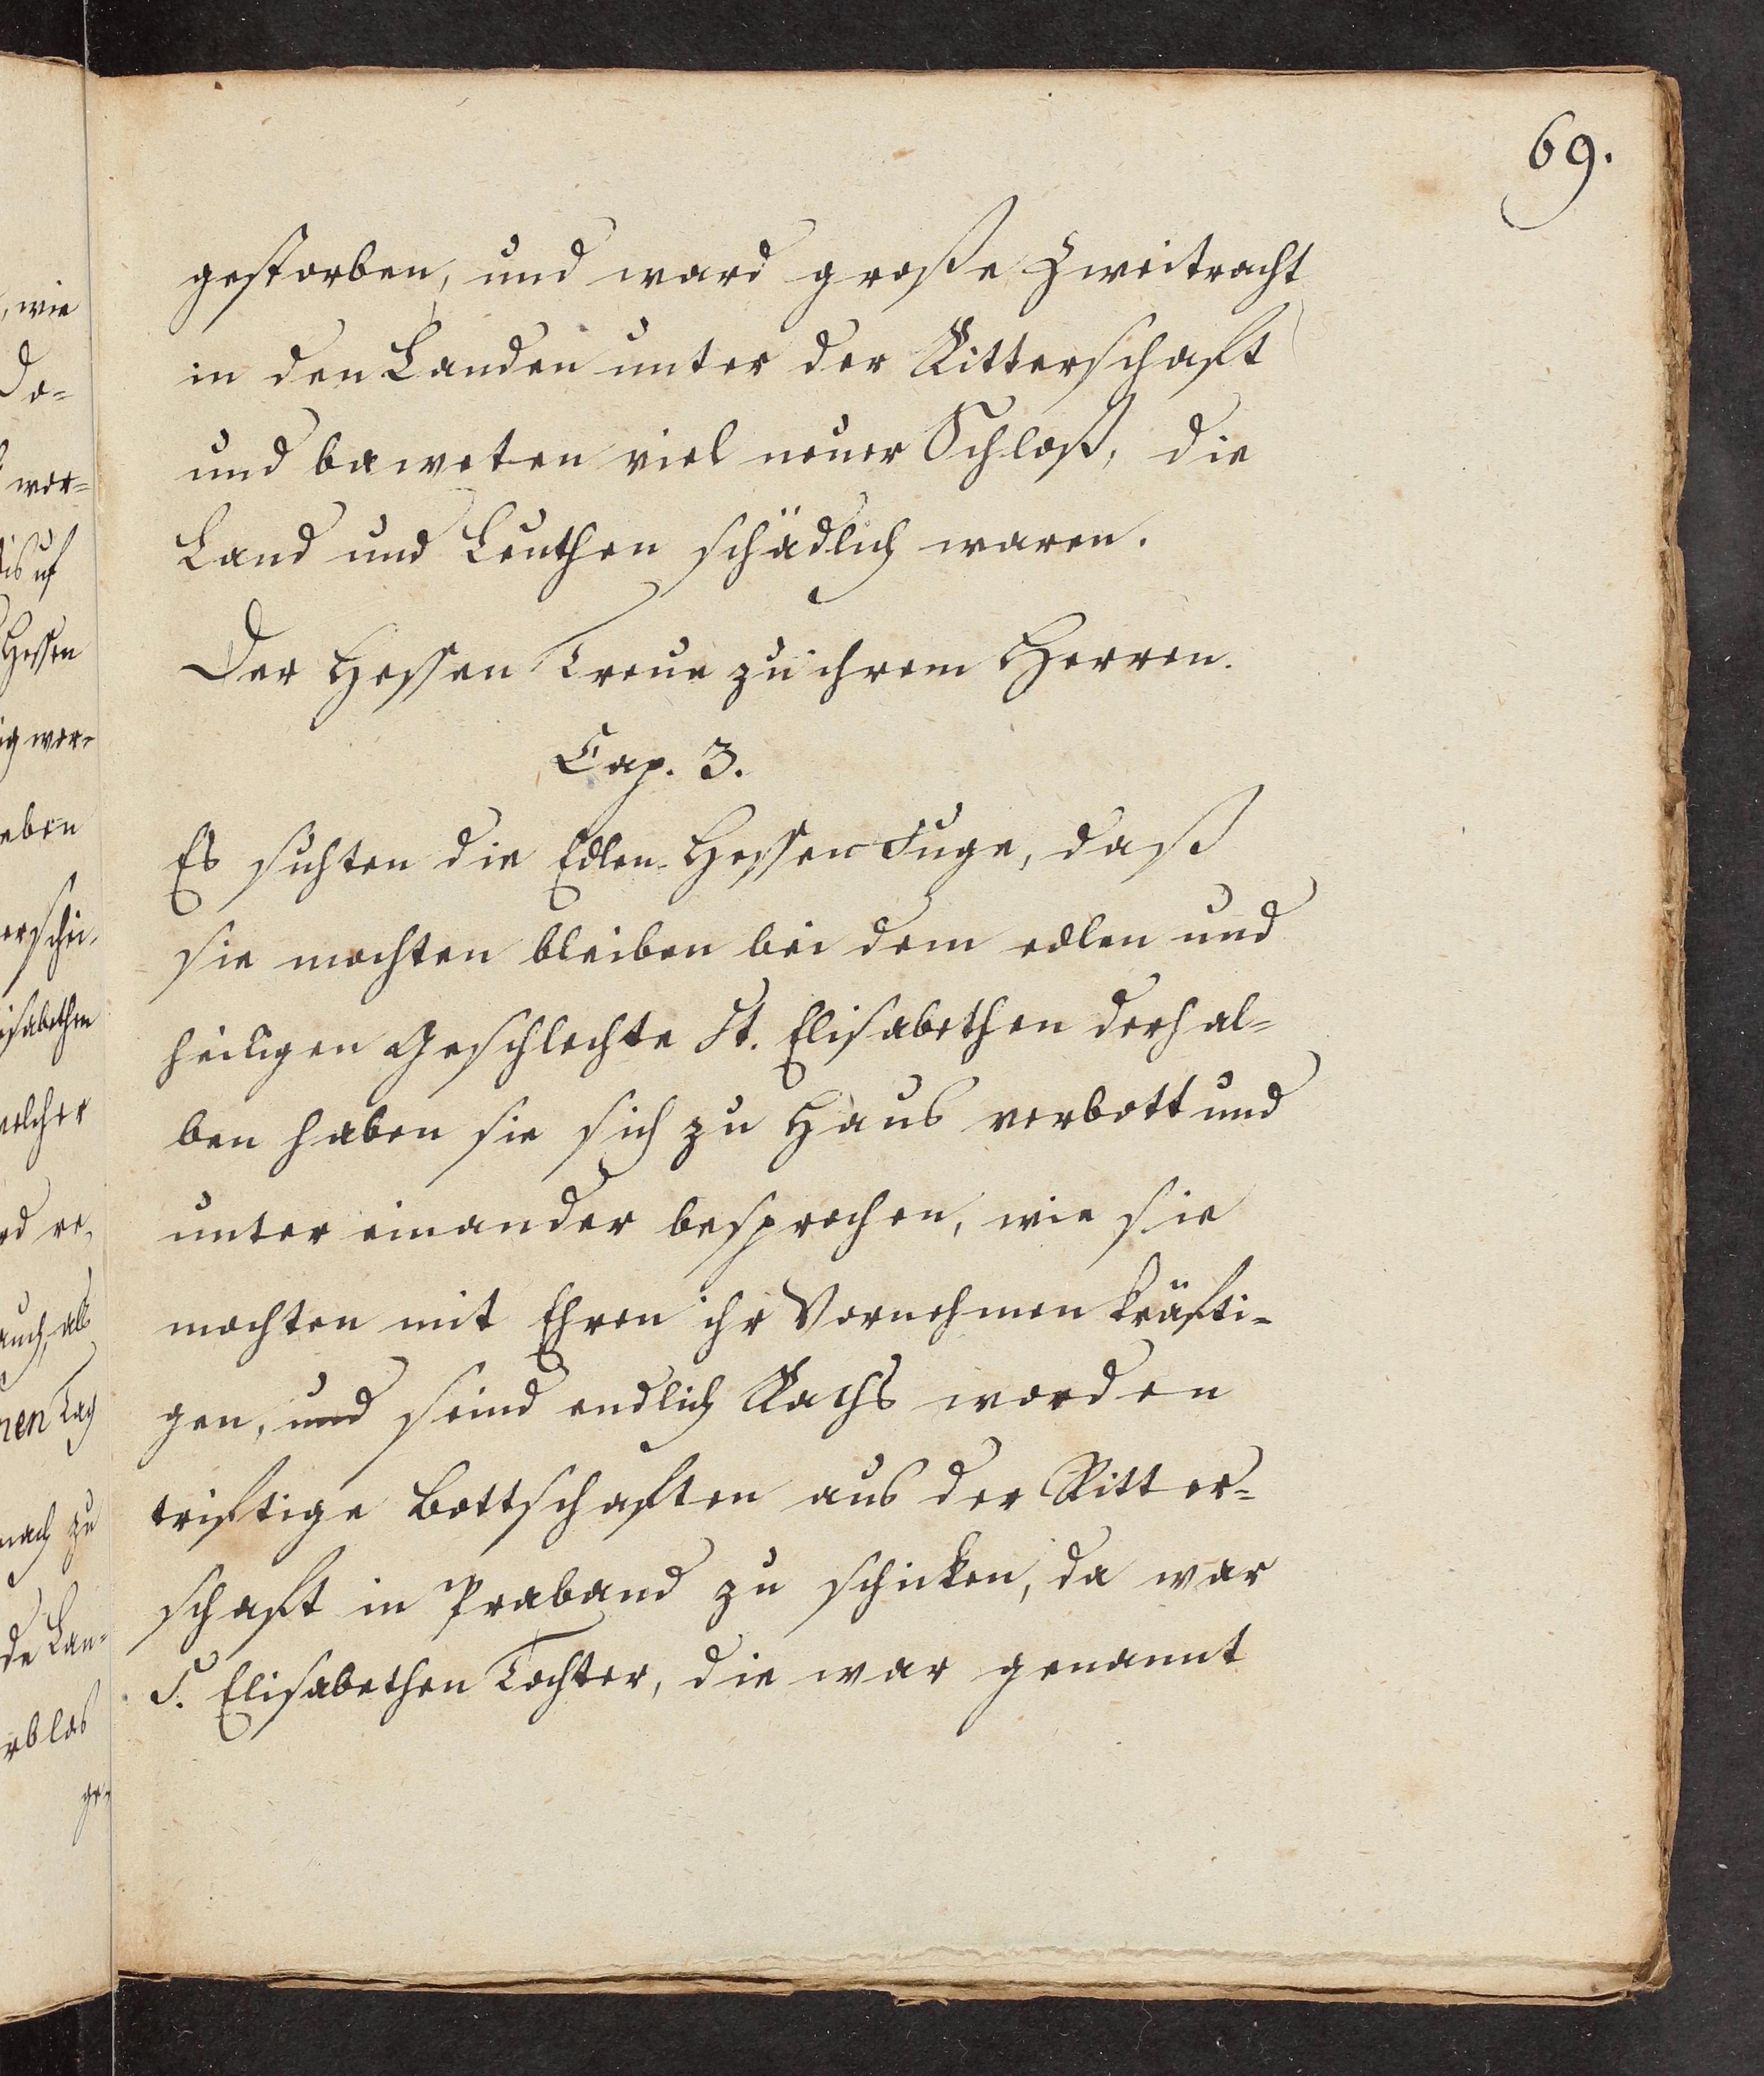 69.
gestorben, und ward große Zweitracht
in den Landen unter der Ritterschaft
und baweten viel neuer Schloß, die
Land und Leuthen schädlich waren.
Der Hessen Treue zu ihrem Herren.
Cap. 3.
Es suchten die Edlen Hessen Fuge, daß
sie mochten bleiben bei dem edlen und
heiligen Geschlechte St. Elisabethen derhal-
ben haben sie sich zu Haus verbott und
unter einander besprochen, wie sie
mochten mit Ehren ihr Vornehmen kräfti-
gen, und seind endlich Raths worden
triftige Bottschaften aus der Ritter-
schaft in Praband zu schicken, da war
S. Elisabethen Tochter, die war genannt